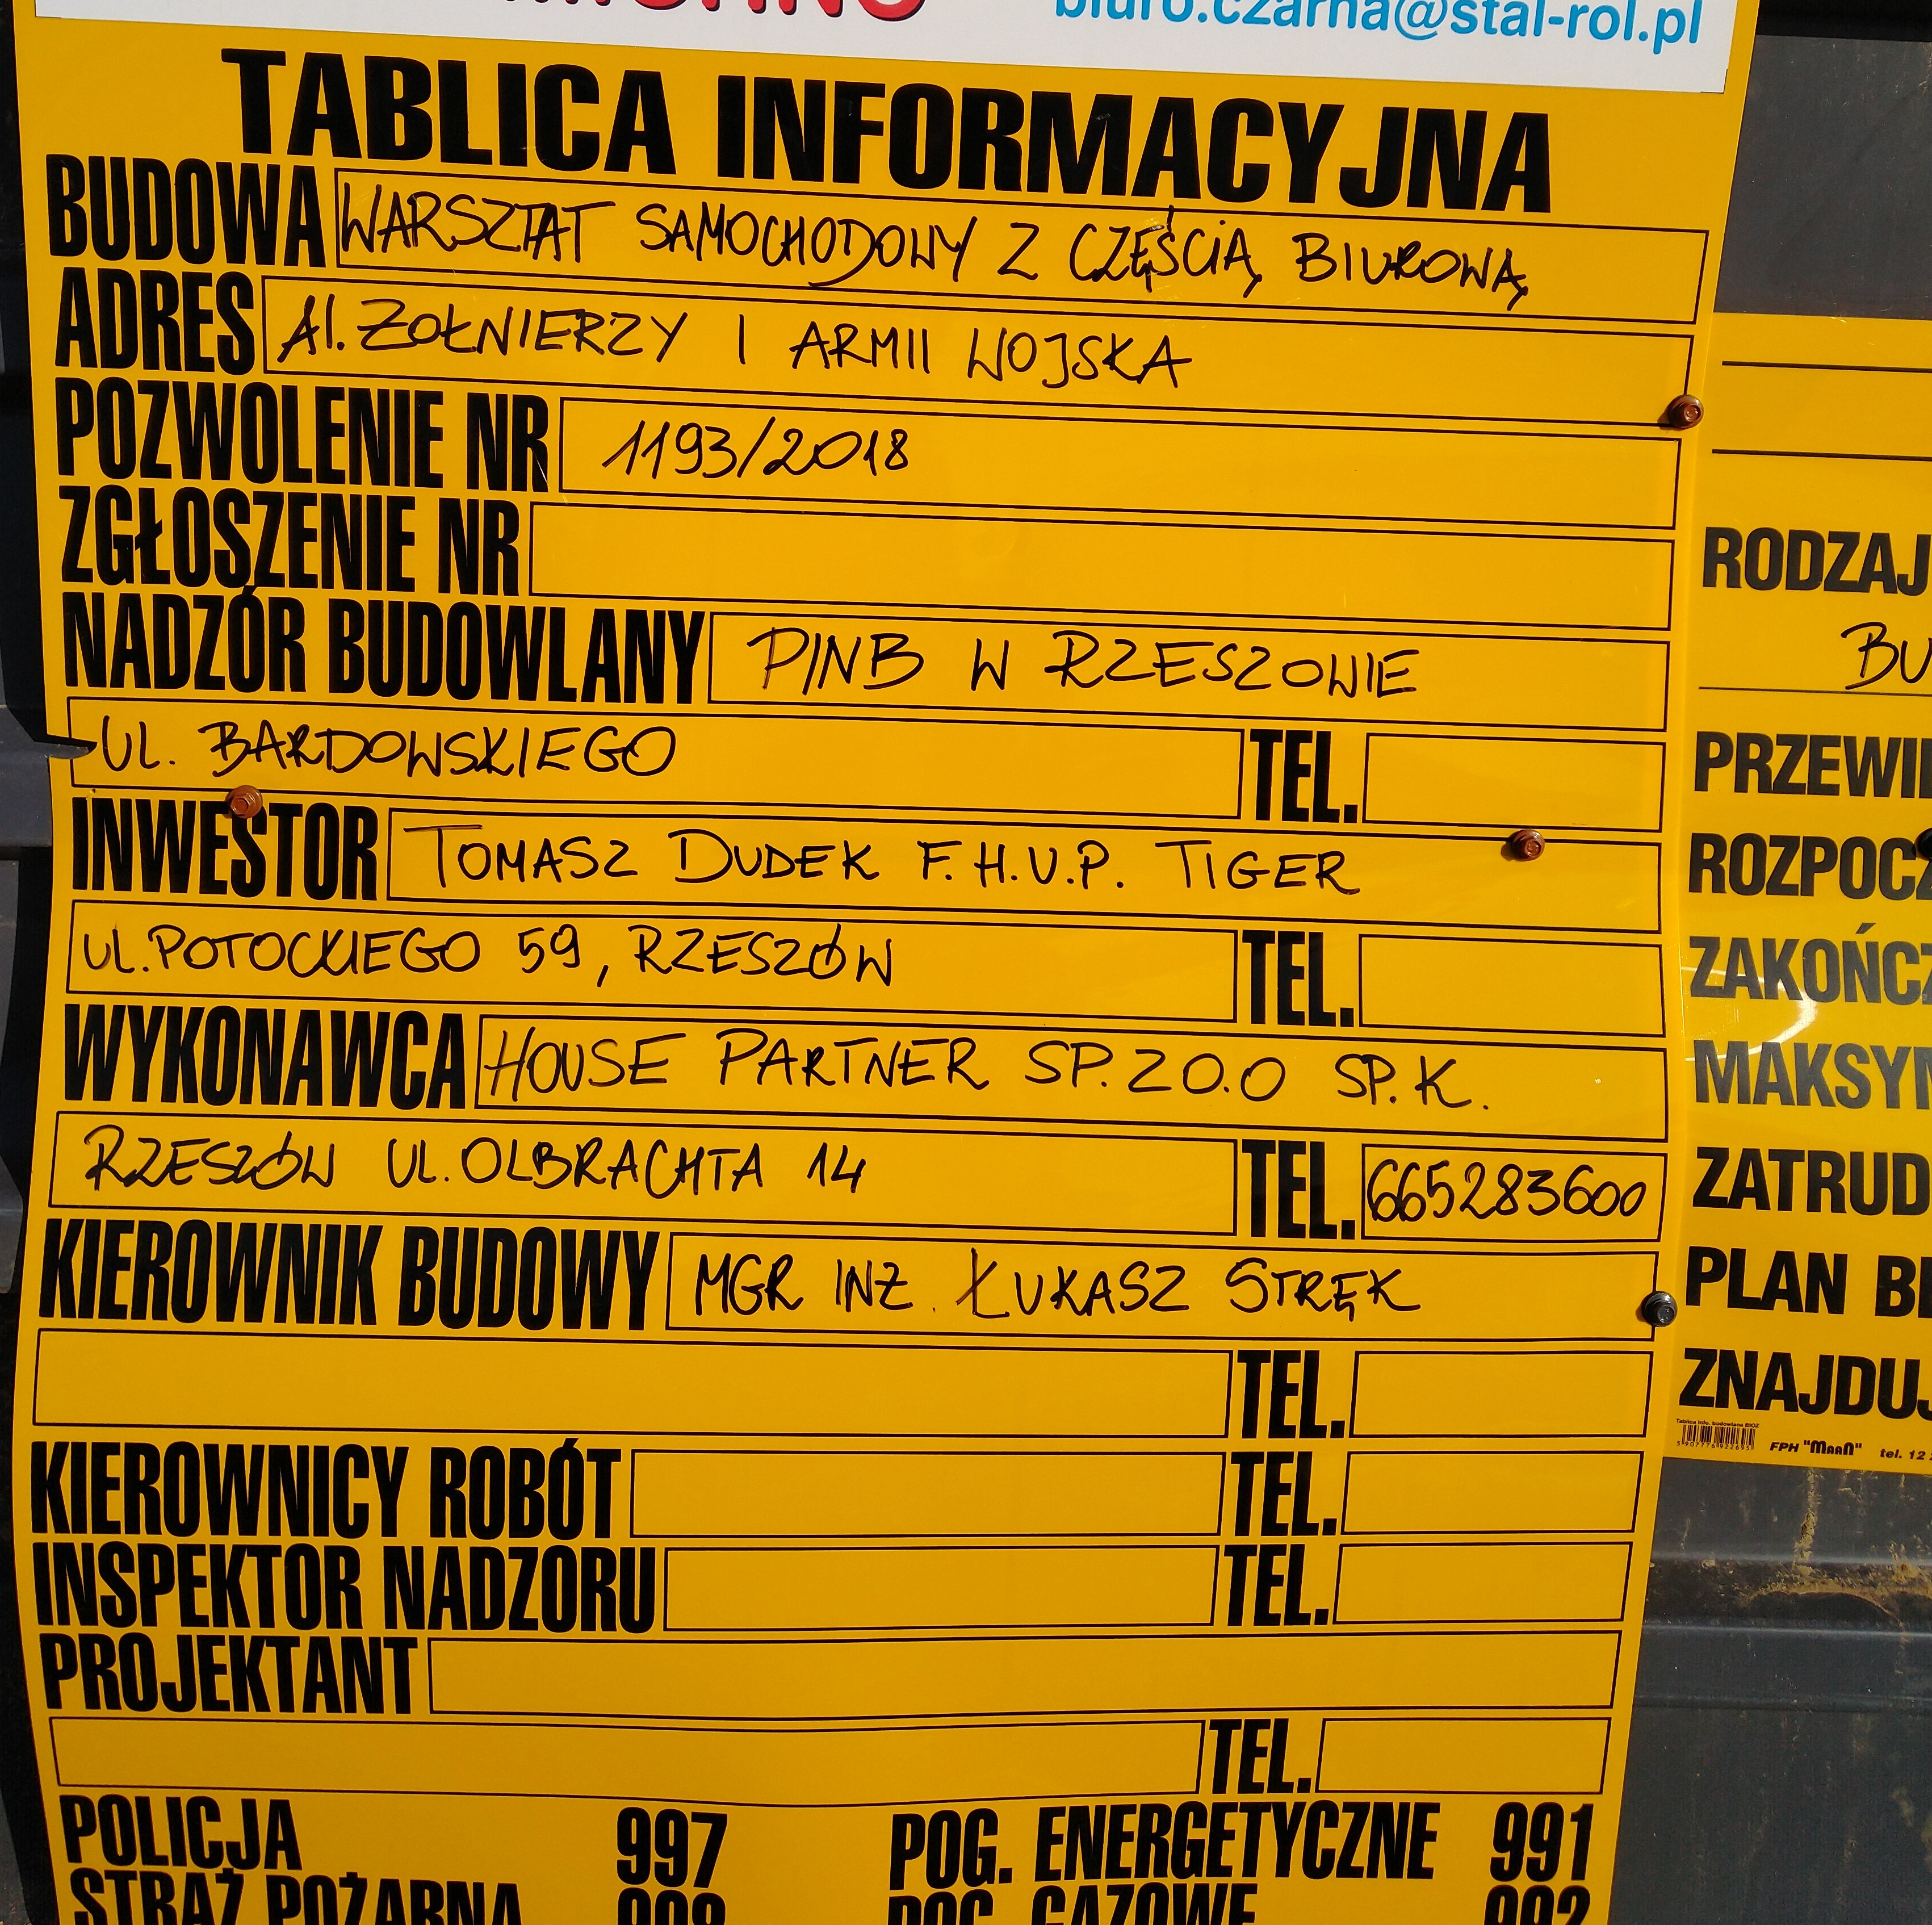 biuro.czarna@stal-rol.pl
TABLICA INFORMACYJNA
BUDOWA WARSZTAT SAMOCHODOWY Z CZĘŚCIĄ BIUROWĄ
ADRES Al. ŻOŁNIERZY I ARMII WOJSKA
POZWOLENIE NR 1193/2018
ZGŁOSZENIE NR
NADZÓR BUDOWLANY PINB W RZESZOWIE
UL. BARDOWSKIEGO TEL.
INWESTOR TOMASZ DUDEK F.H.U.P. TIGER
UL. POTOCKIEGO 59, RZESZÓW TEL.
WYKONAWCA HOUSE PARTNER SP. Z O.O SP. K.
RZESZÓW UL. OLBRACHTA 14 TEL. 665283600
KIEROWNIK BUDOWY MGR INŻ. ŁUKASZ STRĘK
TEL.
KIEROWNICY ROBÓT TEL.
INSPEKTOR NADZORU TEL.
PROJEKTANT
TEL.
POLICJA 997 POG. ENERGETYCZNE 991
STRAŻ POŻARNA 998 POG. GAZOWE 992
RODZAJ
BU
PRZEWI
ROZPOCZ
ZAKOŃCZ
MAKSYM
ZATRUD
PLAN BI
ZNAJDUJ
Tablica info. budowlana BIOZ
5907776922695
FPH "MAAN" tel. 12